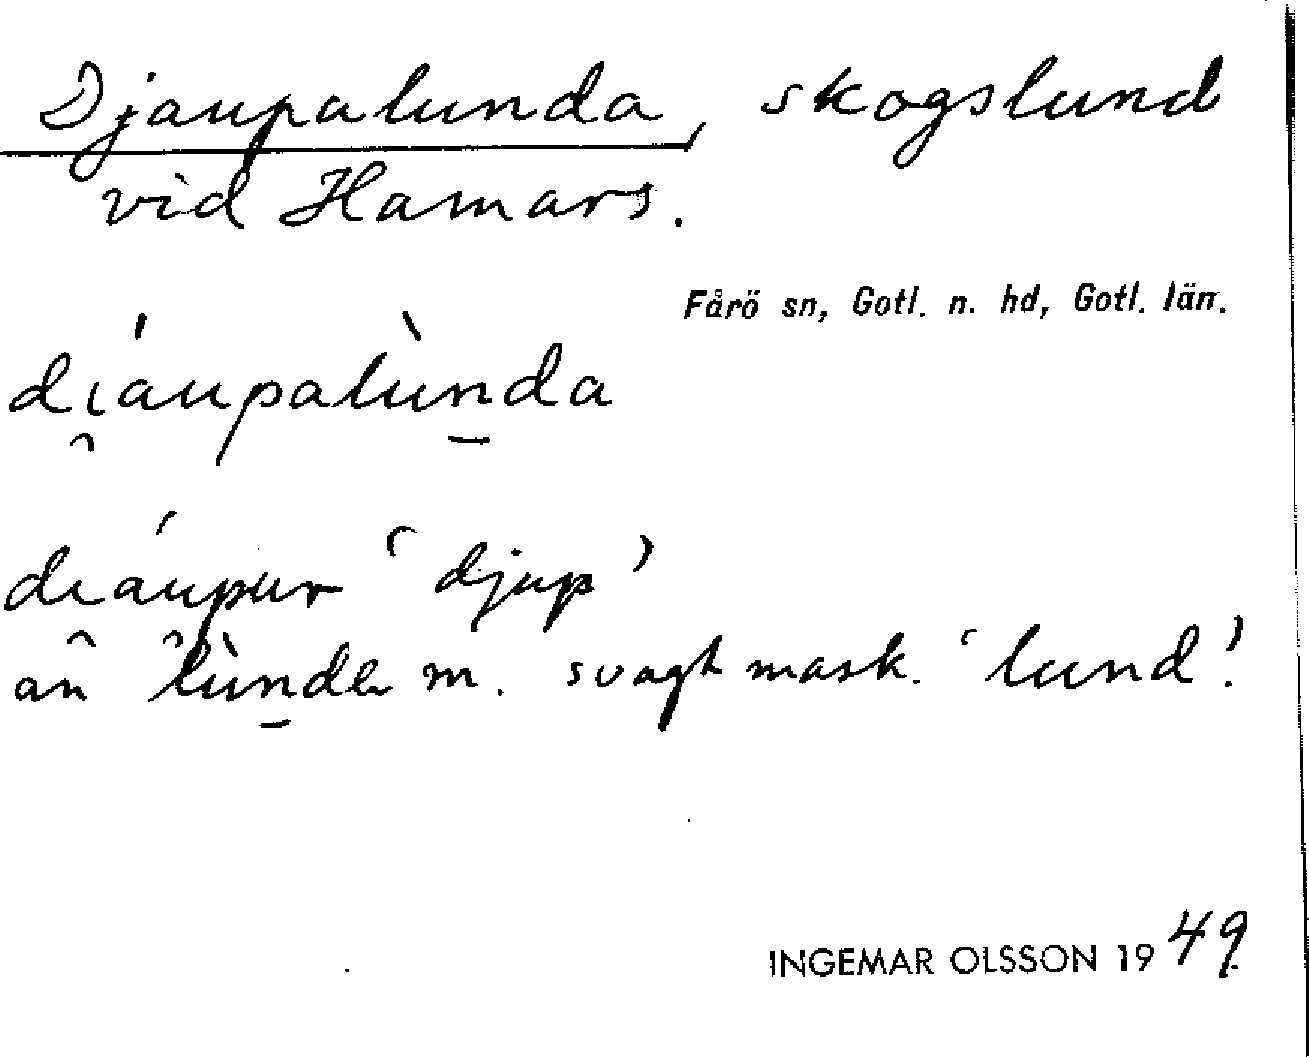 Djaupalunda, skogslund
vid Hamars.
Fårö sn, Gotl. n. hd, Gotl. län.
di̯áupalùn̠da
di̯áupur ‘djup’
an lùn̠de m. svagt mask. ‘lund’.
INGEMAR OLSSON 1949